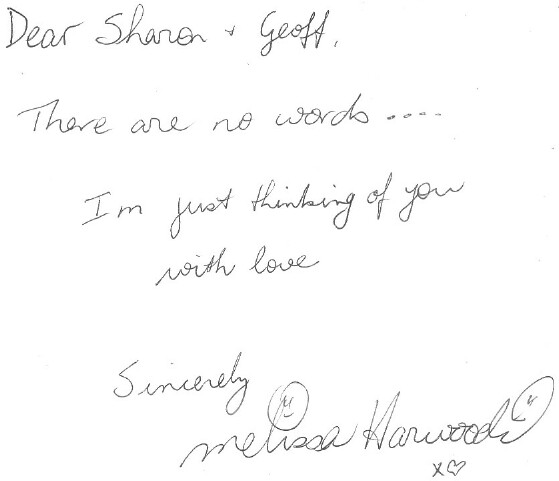 Dear Sharon + Geoff,
There are no words ....
Im just thinking of you
with love
Sincerely
Melissa Harwood
x♡